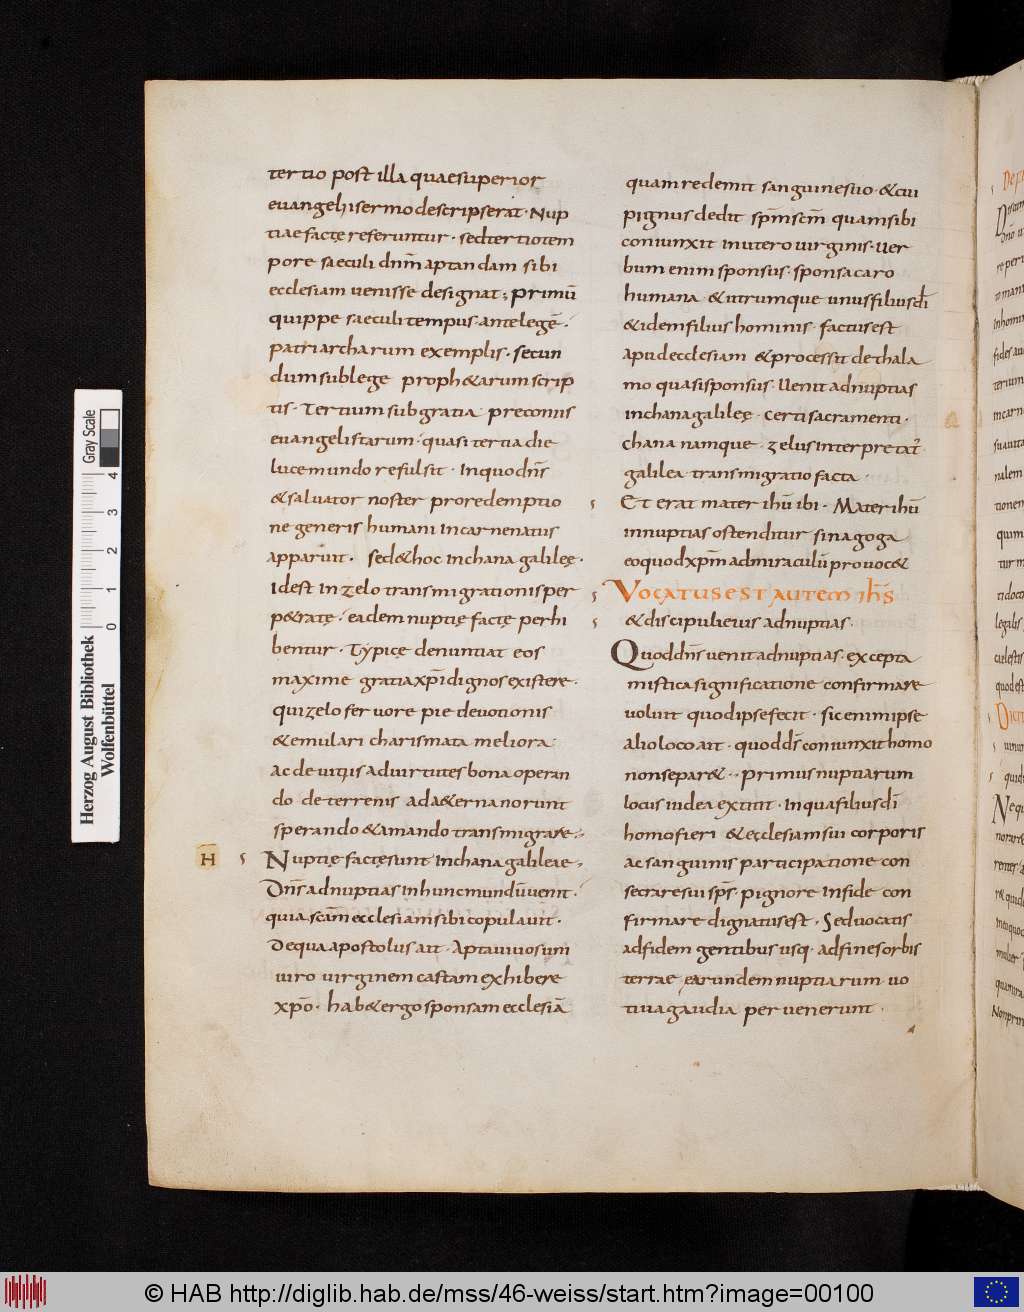 tertio post illa quae superior
euangelii sermo descripserat. Nup
tiae factę referuntur. sed tertio tem
pore saeculi dnm̄ aptandam sibi
ecclesiam uenisse designat; primū
quippe saeculi tempus. ante legē.
patriarcharum exemplis. secun
dum sub lege proph&arum scrip
tis. Tertium sub gratia preconiis
euangelistarum. quasi tertia die
luce mundo refulsit. In quo dn̄s
& saluator noster pro redemptio
ne generis humani in carne natus
apparuit. sed & hoc in chana galileę.
Id est in zelo transmigrationis per
p&ratę. eaedem nuptię factę perhi
bentur. Typicę denuntiat eos
maxime gratia xp̄i dignos existere.
qui zelo feruore pie deuotionis
& emulari charismata meliora
ac de uitiis ad uirtutes bona operan
do. de terrenis ad a&erna norunt
sperando & amando transmigrare.
H
Nuptię factę sunt in chana galileae.
Dn̄s ad nuptias in hunc mundū uenit.
quia scām ecclesiam sibi copulauit.
De qua apostolus ait. Aptaui uos uni
uiro uirginem castam exhibere
xp̄o. hab& ergo sponsam ecclesiā
quam redemit sanguine suo. & cui
pignus dedit sp̄m scm̄ quam sibi
coniunxit in utero uirginis. Uer
bum enim sponsus. sponsa caro
humana & utrumque unus filius dī
& idem filius hominis. factus est
apud ecclesiam & processit de thala
mo quasi sponsus. Uenit ad nuptias
in chana galileę. certi sacramenti.
chana namque. zelus interpretat̄
galilea transmigratio facta.
Et erat mater ihū ibi. Mater ihū
in nuptias ostenditur sinagoga
eo quod xp̄m ad miraculū prouoc&
Vocatus est autem ihs̄
& discipuli eius ad nuptias.
Quod dn̄s uenit ad nuptias. excepta
mistica significatione confirmare
uoluit quod ipse fecit. sic enim ipse
alio loco ait. quod ds̄ coniunxit homo
non separ&. primus nuptiarum
locus iudea extitit. In qua filius dī
homo fieri & ecclesiam sui corporis
ac sanguinis participatione con
secrare sui sps̄. pignore In fide con
firmare dignatus est. Sed uocatis
ad fidem gentibus usq. ad fines orbis
terrae earundem nuptiarum uo
tiua gaudia peruenerunt.
Herzog August Bibliothek
Wolfenbüttel
0 1 2 3 4
Gray Scale
© HAB http://diglib.hab.de/mss/46-weiss/start.htm?image=00100